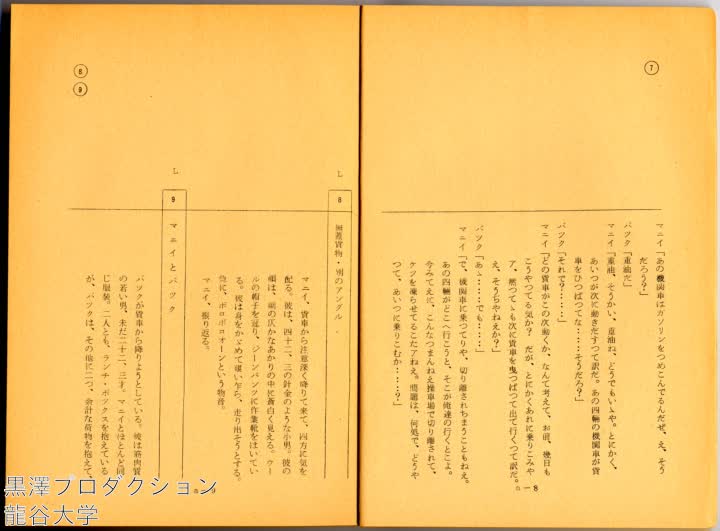 ⑦
マニイ「あの機関車はガソリンをつめこんでるんだぜ、え、そう
だろう？」
バック「重油だ」
マニイ「重油、そうかい、重油ね、どうでもいゝや。とにかく、
あいつが次に動きだすって訳だ。あの四輛の機関車が貨
車をひっぱってな‥‥そうだろ？」
バック「それで？‥‥」
マニイ「どの貨車がこの次動くか、なんて考えて、お前、幾日も
こうやってる気か？ だが、とにかくあれに乗りこみや
ア、黙ってゝも次に貨車を曳っぱって出て行くって訳だ。
え、そうぢやねえか？」
バック「あゝ‥‥でも‥‥」
マニイ「で、機関車に乗ってりや、切り離されちまうこともねえ。
あの四輛がどこへ行こうと、そこが俺達の行くとこよ。
今みてえに、こんなつまんねえ操車場で切り離されて、
ケツを凍らせてるこたアねえ。問題は、何処で、どうや
って、あいつに乗りこむか‥‥？」
a－8
⑧
⑨
L
8
無蓋貨物・別のアングル
マニイ、貨車から注意深く降りて来て、四方に気を
配る。彼は、四十二、三の針金のような小男。彼の
顔は、朝の仄かなあかりの中に蒼白く見える。ウー
ルの帽子を冠り、ジーンパンツに作業靴をはいてい
る。彼は身をかゞめて覗い乍ら、走り出そうとする。
急に、ポロポロオーンという物音。
マニイ、振り返る。
L
9
マニイとバック
バックが貨車から降りようとしている。彼は筋肉質
の若い男、未だ二十二、三才。マニイとほとんど同
じ服装。二人とも、ランチ・ボックスを抱えている
が、バックは、その他に二つ、余計な荷物を抱えて、
a－9
黒澤プロダクション
龍谷大学